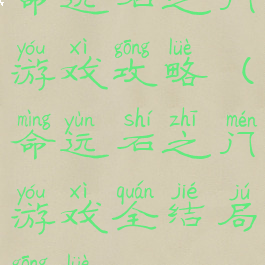 命运石之门
yóu xì gōng lüè
游戏攻略（
mìng yùn shí zhī mén
命运石之门
yóu xì quán jié jú
游戏全结局
gōng lüè